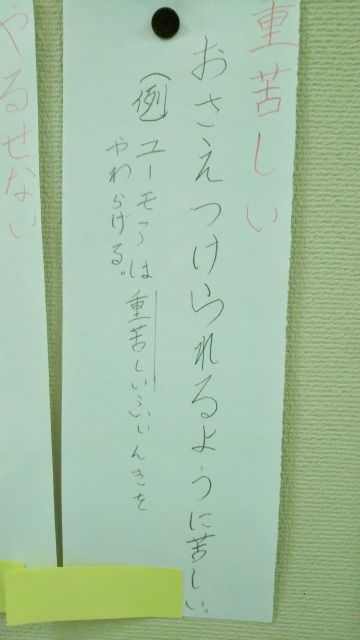 重苦しい
おさえつけられるように苦しい。
(例)ユーモアは重苦しいふいんきを
やわらげる。
やるせない